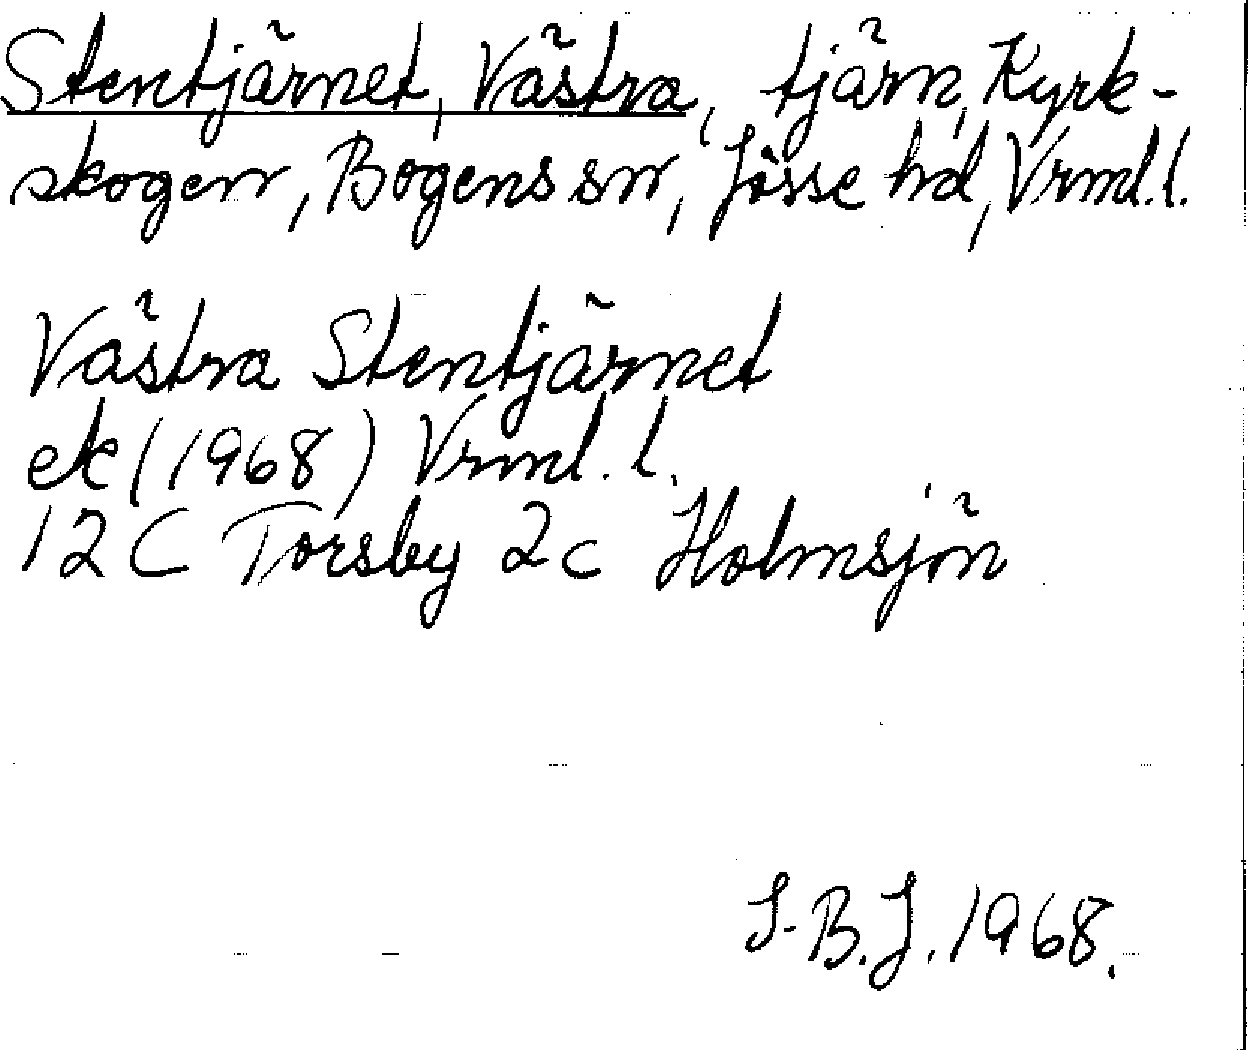 Stentjärnet, Västra, tjärn, Kyrk-
skogen, Bogens sn, Jösse hd, Vrml. l.
Västra Stentjärnet
ek (1968) Vrml. l.
12 C Torsby 2c Holmsjön
S-B.J. 1968.